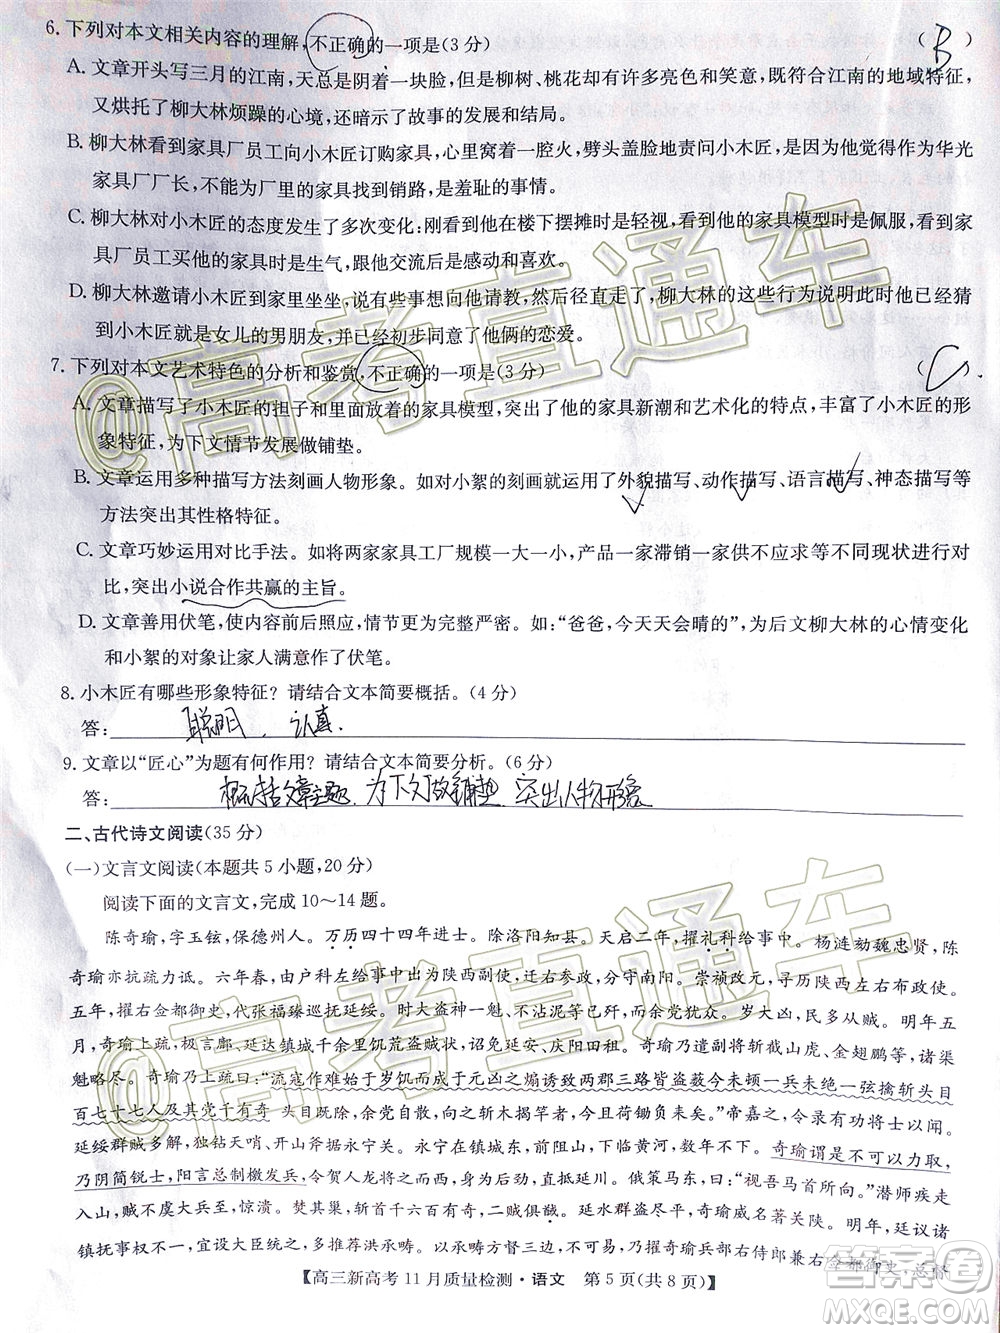 6. 下列对本文相关内容的理解,不正确的一项是(3 分) ( B )
A. 文章开头写三月的江南,天总是阴着一块脸,但是柳树、桃花却有许多亮色和笑意,既符合江南的地域特征,
又烘托了柳大林烦躁的心境,暗示了故事的发展与结局。
B. 柳大林看到家具厂员工向小木匠订购家具,心里窝着一腔火,劈头盖脸地质问小木匠,他觉得作为华光
家具厂厂长,不能为厂里的家具找到销路,是羞耻的事情。
C. 柳大林对小木匠的态度发生了多次变化:刚看到他在楼下摆摊时是轻视,看到他的家具模型时是佩服,看到家具
厂员工买他的家具时是生气,跟他交流后是感动和喜欢。
D. 柳大林邀请小木匠到家里坐坐,说有些事情要向他请教,然后径直走了,柳大林的这些行为说明此时他已经猜
到小木匠就是女儿的男朋友,并已经初步同意了他俩的恋爱。
7. 下列对本文艺术特色的分析和鉴赏,不正确的一项是(3分) ( C
A. 文章描写了小木匠的担子和里面放着的家具模型,突出了他的家具新潮和艺术化的特点,丰富了小木匠的形
象特征,为下文情节发展做铺垫。
B. 文章运用多种描写方法刻画人物形象。如对小絮的刻画就运用了外貌描写、动作描写、语言描写、神态描写等
方法突出其性格特征。
C. 文章巧妙运用对比手法。如将两家家具工厂规模一大一小,产品一家滞销一家供不应求等不同现状进行对
比,突出小说合作共赢的主旨。
D. 文章善用伏笔,使内容前后照应,情节更为完整严密。如:“爸爸,今天天会晴的”,为后文柳大林的心情变化
和小絮的对象让家人满意作了伏笔。
8. 小木匠有哪些形象特征?请结合文本简要概括。(4 分)
答: 聪明、认真.
9. 文章以“匠心”为题有何作用?请结合文本简要分析。(6 分)
答: 概括文章主题、为下文做铺垫 突出人物形象
二、古代诗文阅读(35 分)
(一)文言文阅读(本题共 5 小题,20 分)
阅读下面的文言文,完成 10～14 题。
陈奇瑜,字玉铉,保德州人。万历四十四年进士。除洛阳知县。天启二年,擢礼科给事中。杨涟劾魏忠贤,陈
奇瑜亦抗疏力诋。六年春,由户科左给事中出为陕西副使,迁右参政,分守南阳。崇祯改元,加按察使职,寻历陕西左右布政使。
五年,擢右佥都御史,代张福臻巡抚延绥。时大盗神一魁、不沾泥等已歼,而余党犹众。明年五月,
奇瑜上疏,极言鄜、延达镇城千余里饥荒盗贼状,诏免延安、庆阳田租。奇瑜乃遣副将斩截山虎、金翅鹏等,诸渠
魁略尽。奇瑜乃上疏曰:“流寇作难始于岁饥而成于元凶之煽诱致两郡三路皆盗薮今未顿一兵未绝一弦擒斩头目
百七十七人及其党千有奇 头目既除,余党自散,向之斩木揭竿者,今且荷锄负耒矣。”帝嘉之,令录有功将吏以闻。
延绥群贼多解,独钻天哨、开山斧据永宁关。永宁在镇城东,前阻山,下临黄河,数年不下。奇瑜谓是不可以力取,
乃阴简锐士,阳言总制檄发兵,令贺人龙将之而西,身为后劲,直抵延川。俄策马东,曰:“视吾马首所向。”潜师疾走
入山,贼大惊溃。焚其巢,斩首千六百有奇,二贼俱歼。延水群盗尽平,奇瑜威名著关陕。明年,廷议诸
镇抚事权不一,宜设大臣统之,多推荐洪承畴。以承畴方督三边,不可易,乃擢奇瑜兵部右侍郎兼右佥都御史,总督
【高三新高考 11 月质量检测·语文 第 5 页(共 8 页)】
@高考直通车
@高考直通车
答案圈
MXQE.COM